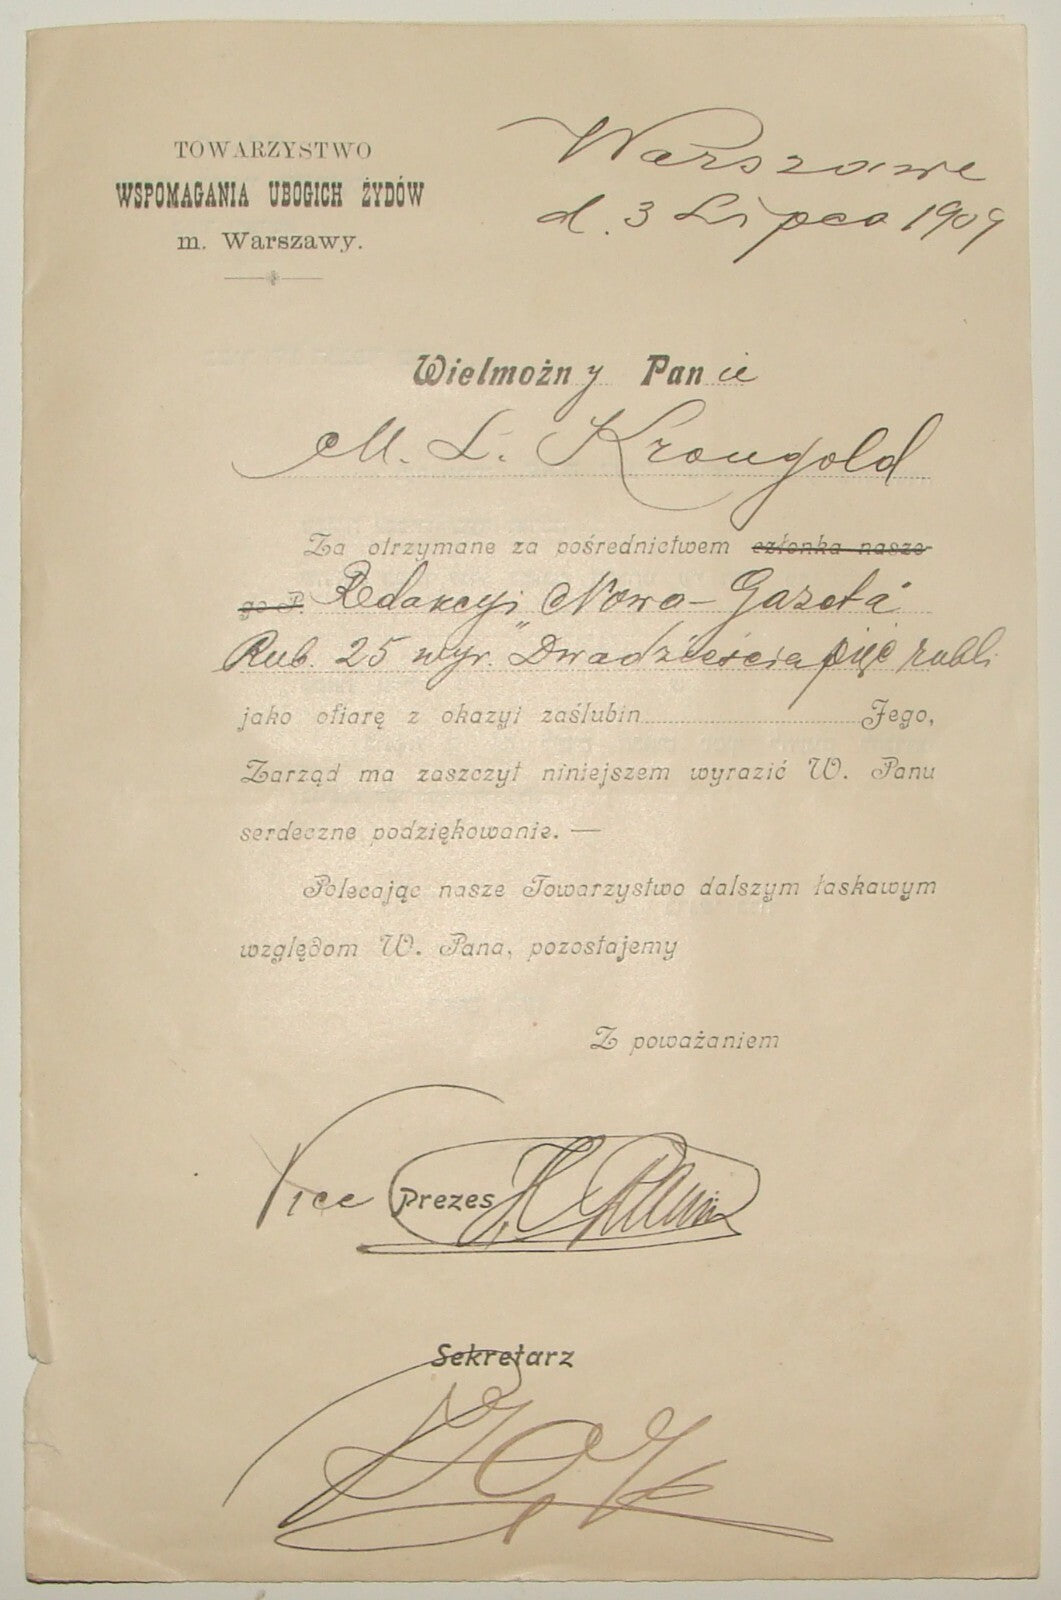 TOWARZYSTWO
WSPOMAGANIA UBOGICH ŻYDÓW
m. Warszawy.
Warszawa
d. 3 Lipca 1909
Wielmożny Panie
M. L. Krongold
Za otrzymane za pośrednictwem członka nasze-
go P. Redakcyi „Nowa-Gazeta"
Rub. 25 wyr. Dwadzieścia pięć rubli
jako ofiarę z okazyi zaślubin Jego,
Zarząd ma zaszczyt niniejszem wyrazić W. Panu
serdeczne podziękowanie. —
Polecając nasze Towarzystwo dalszym łaskawym
względom W. Pana, pozostajemy
Z poważaniem
Vice Prezes
Sekretarz